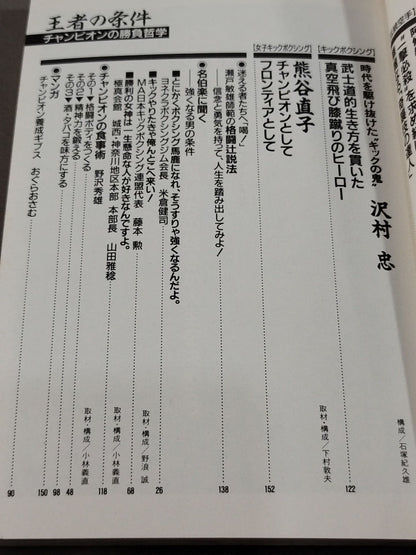 王者の条件
チャンピオンの勝負哲学
構成/石塚紀久雄
[キックボクシング]
時代を駆け抜けた“キックの鬼” 沢村 忠
武士道的生き方を貫いた
真空飛び膝蹴りのヒーロー
122
取材・構成/下村敦夫
[女子キックボクシング]
熊谷直子
チャンピオンとして
フロンティアとして
152
●迷える者たちへ、「喝!」
瀬戸敏雄師範の格闘辻説法
信念と勇気を持って、人生を踏み出してみよ!
138
●名伯楽に聞く
強くなる男の条件
■とにかくボクシング馬鹿になれ、そうすりゃ強くなるんだよ。
ヨネクラボクシングジム会長 米倉健司
26
取材・構成/野浪 誠
■キックやりたきゃ俺んとこへ来い!
MA日本キックボクシング連盟代表 藤本 勲
68
取材・構成/小林義直
■勝利の女神は一生懸命な人が好きなんですよ。
極真会館 城西・神奈川地区本部 本部長 山田雅稔
118
取材・構成/小林義直
●チャンピオンの食事術 野沢秀雄
その1▼格闘ボディをつくる
48
その2▼精神力を鍛える
98
その3▼酒・タバコを味方にする
150
●マンガ
チャンピオン養成ギブス おぐらおさむ
90